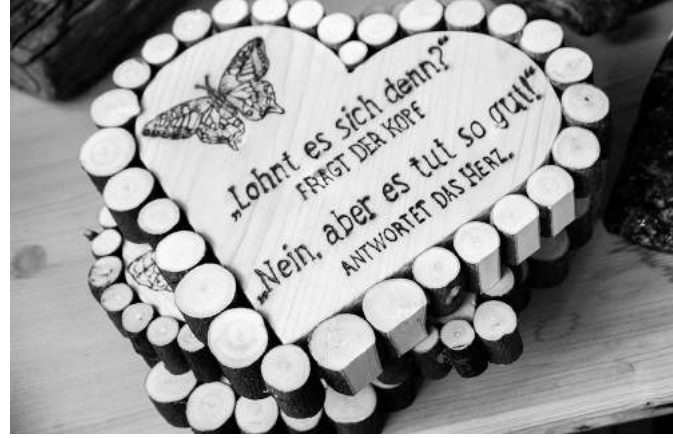 „Lohnt es sich denn?“
FRAGT DER KOPF
„Nein, aber es tut so gut!“
ANTWORTET DAS HERZ.